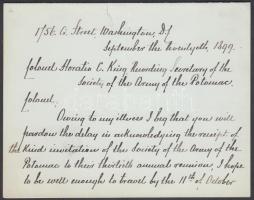 Street, Washington, D.C.
September the twentyeth, 1899.
Colonel Horatio C. King Recording Secretary of the
Society of the Army of the Potomac.
Colonel
Owing to my illness I beg that you will
pardon the delay in acknowledging the receipt of
the kind invitation of the Society of the Army of the
Potomac to their thirtieth annual reunion, I hope
to be well enough to travel by the 11th of October